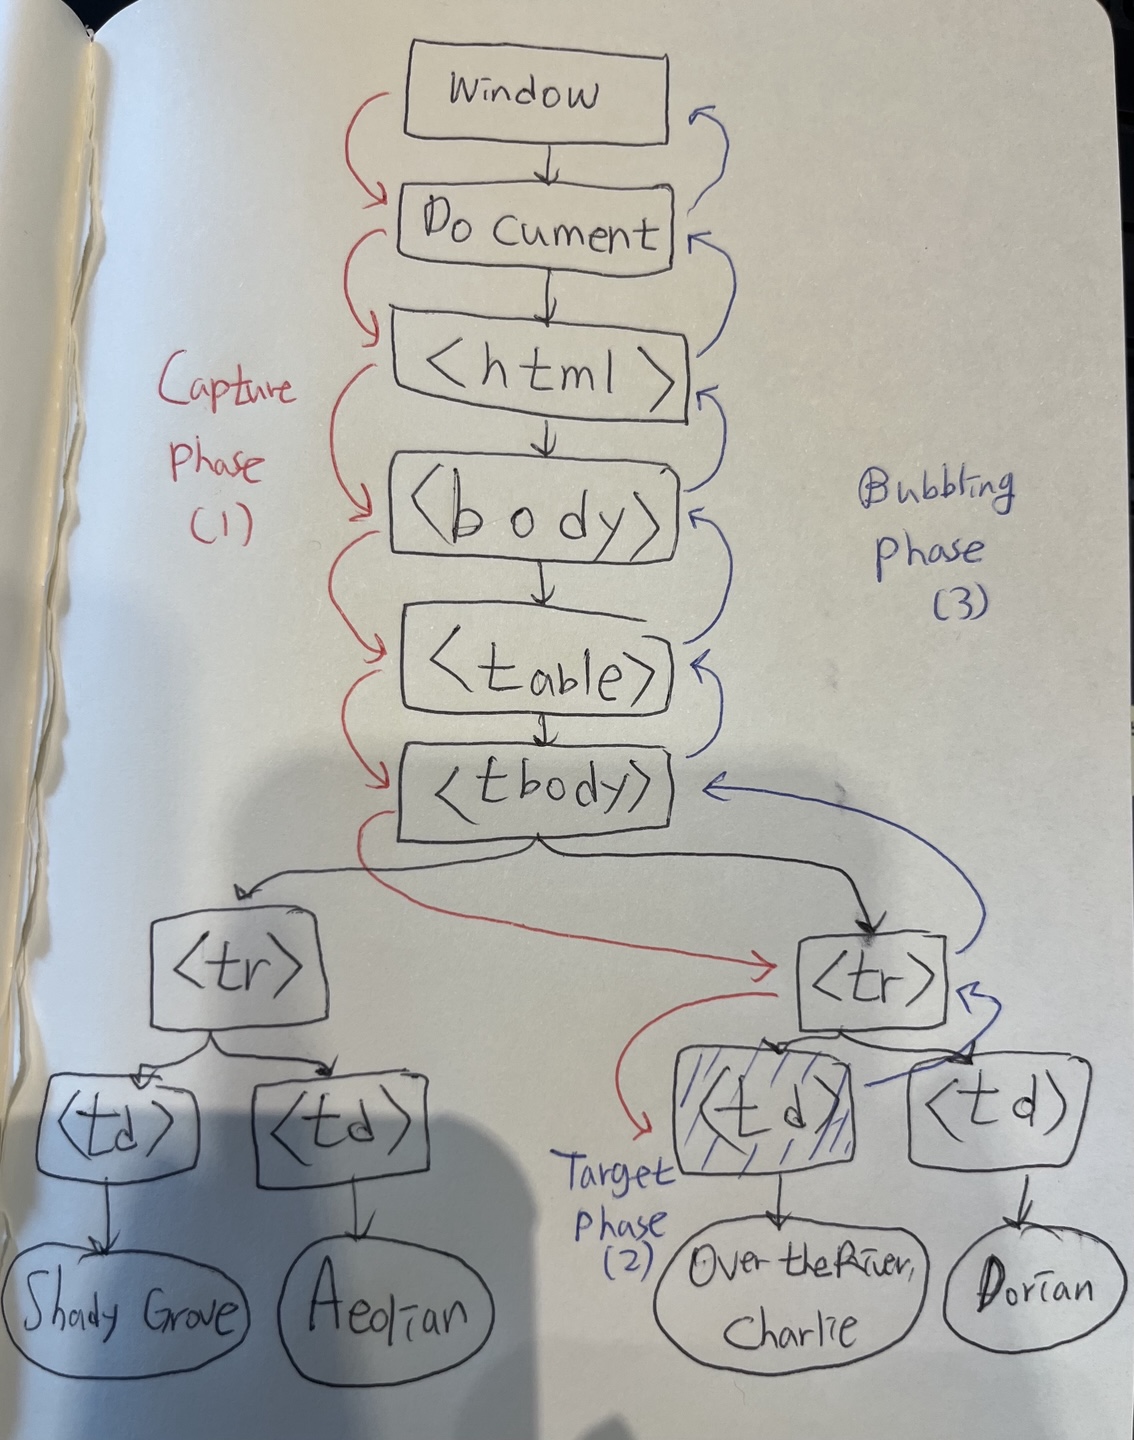 Window
Document
<html>
Capture
phase
(1)
<body>
Bubbling
phase
(3)
<table>
<tbody>
<tr>
<tr>
<td>
<td>
<td>
<td>
Target
phase
(2)
Shady Grove
Aeolian
Over the River,
Charlie
Dorian